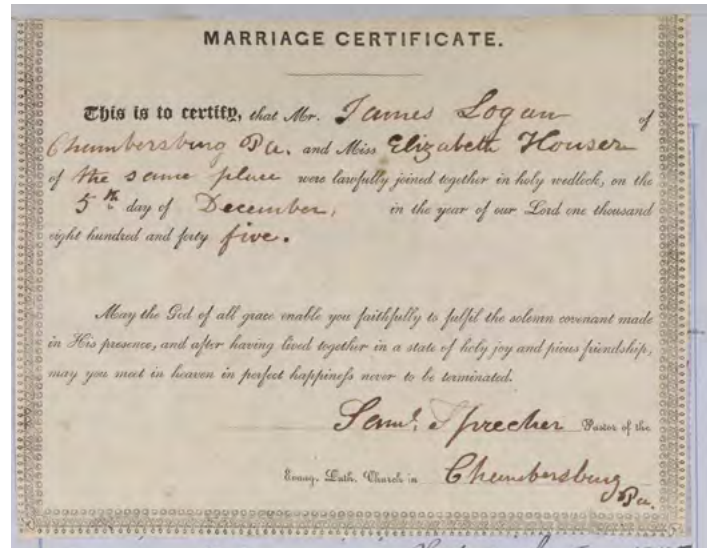 MARRIAGE CERTIFICATE.
This is to certify, that Mr. James Logan of
Chambersburg Pa. and Miss Elizabeth Houser
of the same place were lawfully joined together in holy wedlock, on the
5th day of December, in the year of our Lord one thousand
eight hundred and forty five.
May the God of all grace enable you faithfully to fulfil the solemn covenant made
in His presence, and after having lived together in a state of holy joy and pious friendship,
may you meet in heaven in perfect happiness never to be terminated.
Saml. Sprecher Pastor of the
Evang. Luth. Church in Chambersburg
Pa.